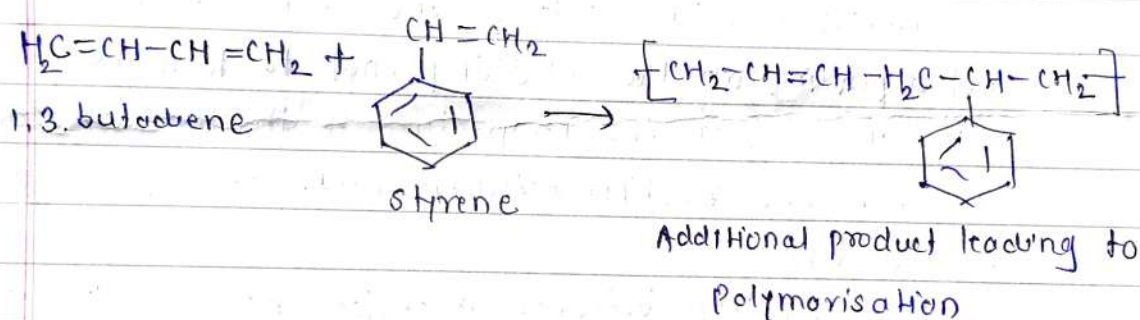 H₂C=CH-CH=CH₂ + CH=CH₂ → [CH₂-CH=CH-H₂C-CH-CH₂]
1,3. butadiene
styrene
Additional product leading to
Polymorisation